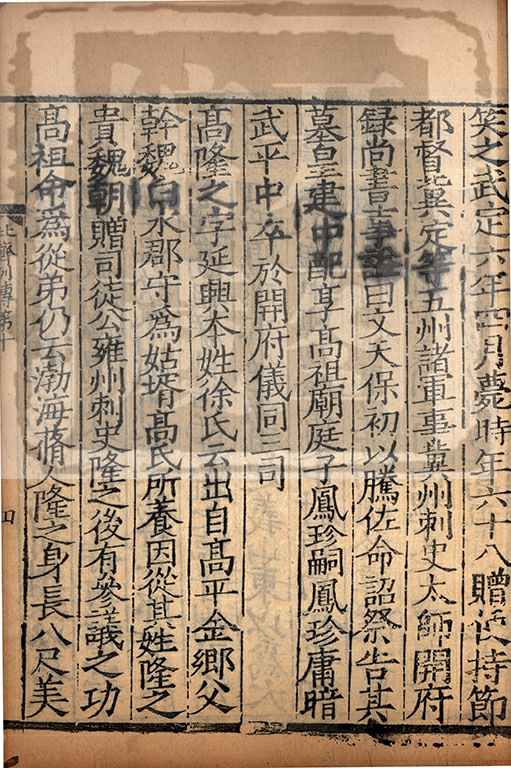 笑之武定六年四月薨時年六十八贈使持節
都督冀定等五州諸軍事冀州刺史太師開府
録尚書事謚曰文天保初以騰佐命詔祭告其
墓皇建中配享高祖廟庭子鳳珍嗣鳳珍庸暗
武平中卒於開府儀同三司
高隆之字延興本姓徐氏云出自高平金鄉父
幹魏白水郡守為姑壻高氏所養因從其姓隆之
貴魏朝贈司徒公雍州刺史隆之後有參議之功
高祖命為從弟仍云渤海蓨人隆之身長八尺美
北齊列傳第十
四